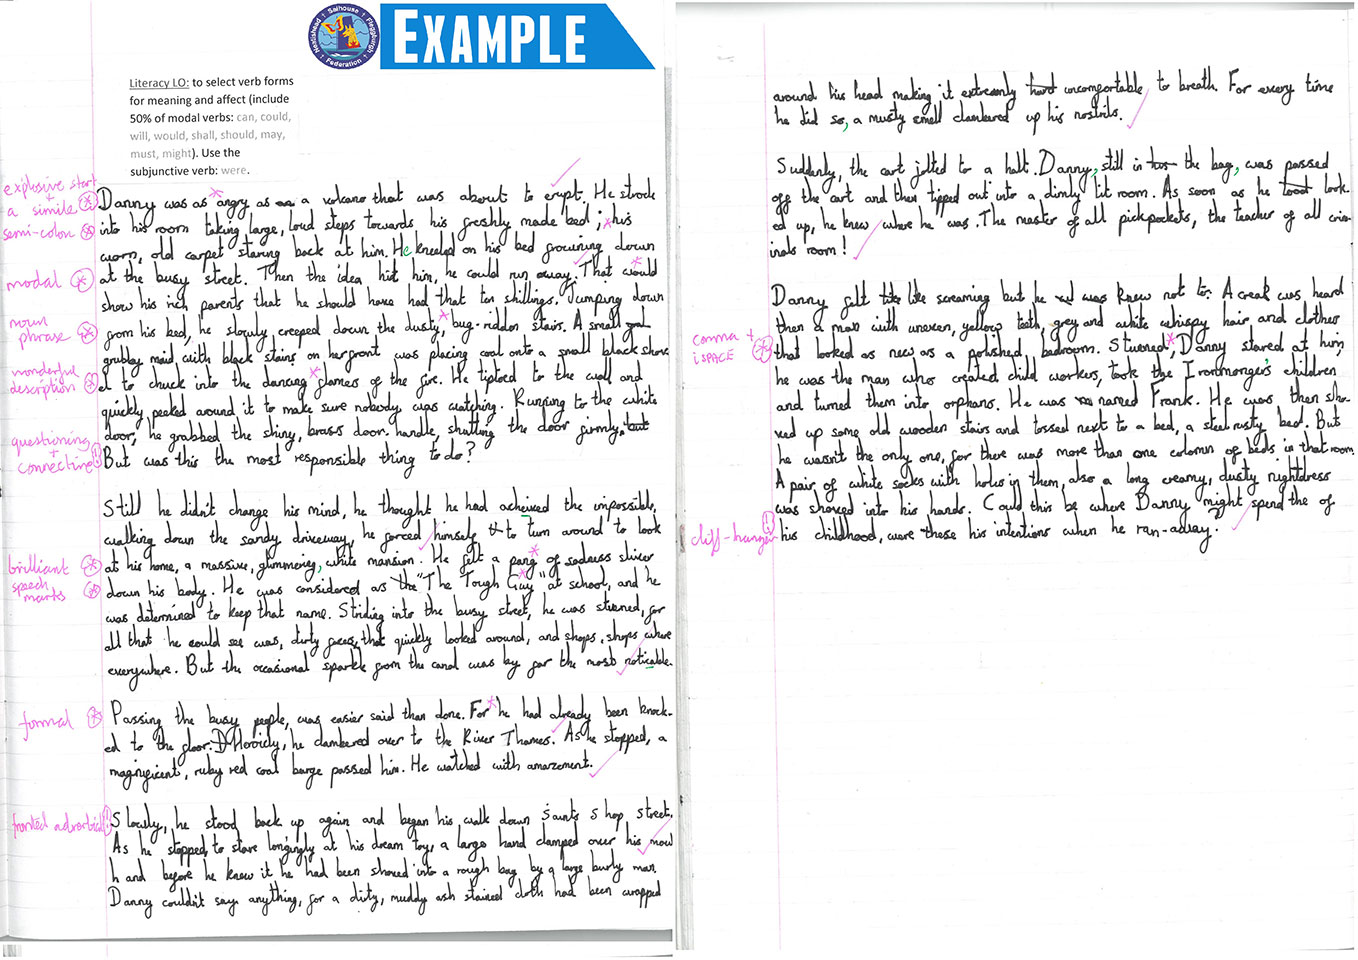 Hemblington Salhouse Fleggburgh Federation
EXAMPLE
Literacy LO: to select verb forms
for meaning and affect (include
50% of modal verbs: can, could,
will, would, shall, should, may,
must, might). Use the
subjunctive verb: were.
explosive start
+
a simile
semi-colon
modal
noun
phrase
wonderful
description
questioning
+ connecting
brilliant
speech
marks
formal
fronted adverbial
Danny was as angry as a volcano that was about to erupt. He strode
into his room taking large, loud steps towards his freshly made bed; his
worn, old carpet staring back at him. He kneeled on his bed frowning down
at the busy street. Then the idea hit him, he could run away. That would
show his rich parents that he should have had that ten shillings. Jumping down
from his bed, he slowly creeped down the dusty, bug-ridden stairs. A small
grubby maid, with black stains on her front was placing coal onto a small black shov
el to chuck into the dancing flames of the fire. He tiptoed to the wall and
quickly peeked around it to make sure nobody was watching. Running to the white
door, he grabbed the shiny, brass door handle, shutting the door firmly, but
But was this the most responsible thing to do?
Still he didn't change his mind, he thought he had acheived the impossible,
walking down the sandy driveway, he forced himself to turn around to look
at his home, a massive, glimmering, white mansion. He felt a pang of sadness sliver
down his body. He was considered as the "The Tough Guy" at school, and he
was determined to keep that name. Striding into the busy street, he was stunned, for
all that he could see was, dirty faces, that quickly looked around, and shops, shops where
everywhere. But the occasional sparkle from the canal was by far the most noticable.
Passing the busy people, was easier said than done. For he had already been knock-
ed to the floor. , he clambered over to the River Thames. As he stopped, a
magnificent, ruby red coal barge passed him. He watched with amazement.
Slowly, he stood back up again and began his walk down Saints Shop Street.
As he stopped, to stare longingly at his dream toy, a large hand clamped over his mou
h and before he knew it he had been shoved into a rough bag by a large burly man.
Danny couldn't say anything, for a dirty, muddy ash stained cloth had been wrapped
around his head making it extremely hard uncomfortable to breath. For every time
he did so, a musty smell clambered up his nostrils.
Suddenly, the cart jolted to a halt. Danny, still in the bag, was passed
off the cart and then tipped out into a dimly lit room. As soon as he look-
ed up, he knew where he was. The master of all pickpockets, the teacher of all crim-
inals room!
comma +
iSPACE
cliff-hanger
Danny felt like screaming but he knew not to. A creak was heard
then a man with uneven, yellow teeth, grey and white whispy hair and clothes
that looked as new as a polished bedroom. Stunned, Danny stared at him,
he was the man who created child workers, took the Ironmonger's children
and turned them into orphans. He was named Frank. He was then sho-
ved up some old wooden stairs and tossed next to a bed, a steel rusty bed. But
he wasn't the only one, for there was more than one column of beds in that room.
A pair of white socks with holes in them, also a long creamy, dusty nightdress
was shoved into his hands. Could this be where Danny might spend the of
his childhood, were these his intentions when he ran-away.